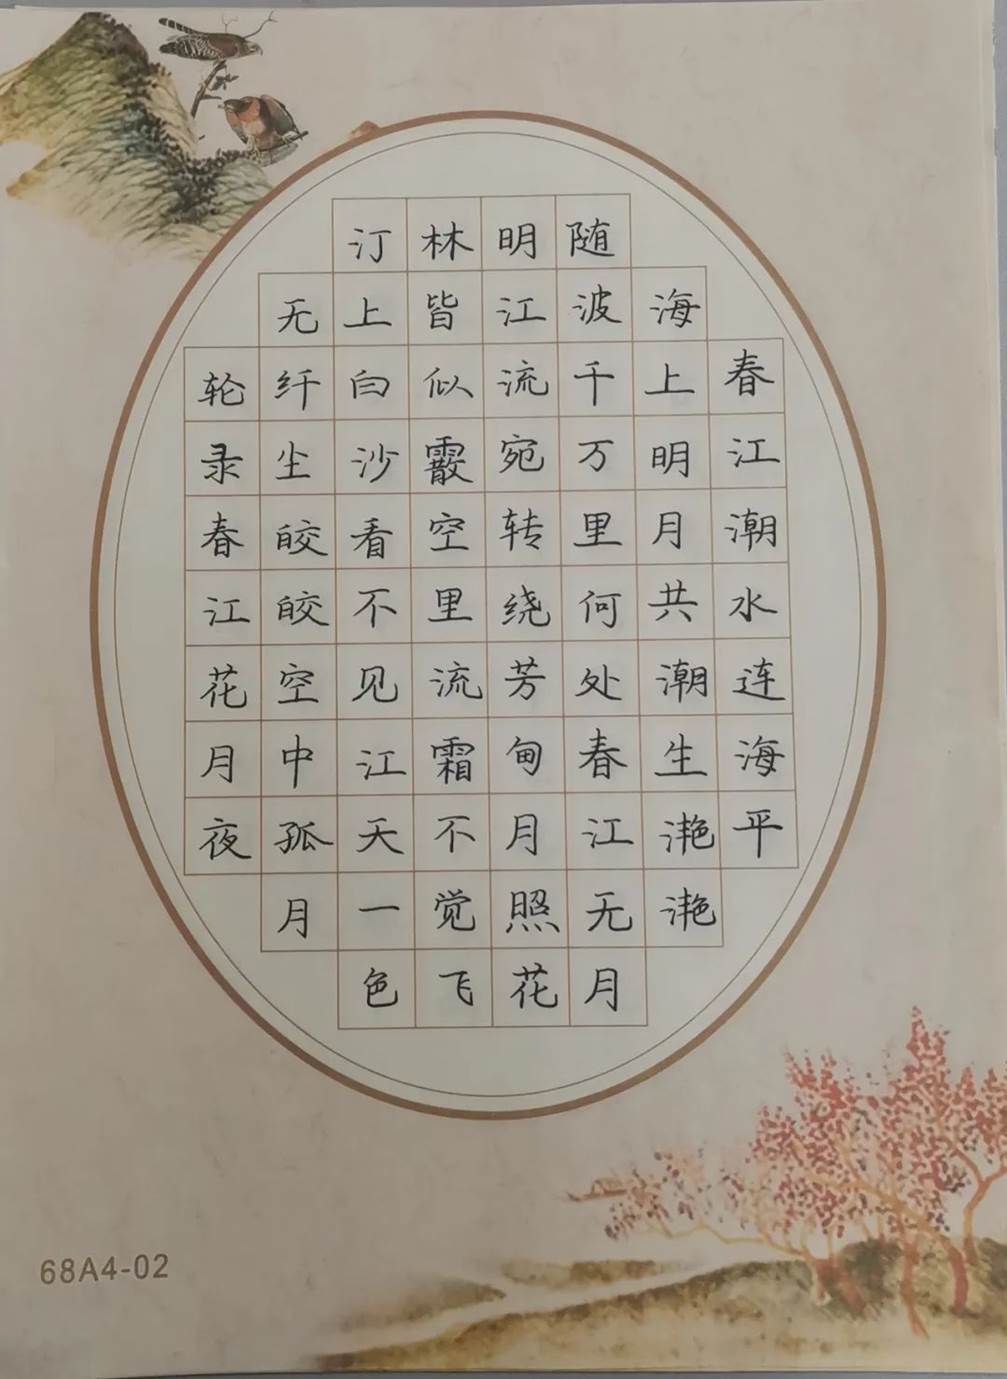 春江潮水连海平
海上明月共潮生滟滟
随波千万里何处春江无月
明江流宛转绕芳甸月照花
林皆似霰空里流霜不觉飞
汀上白沙看不见江天一色
无纤尘皎皎空中孤月
轮录春江花月夜
68A4-02